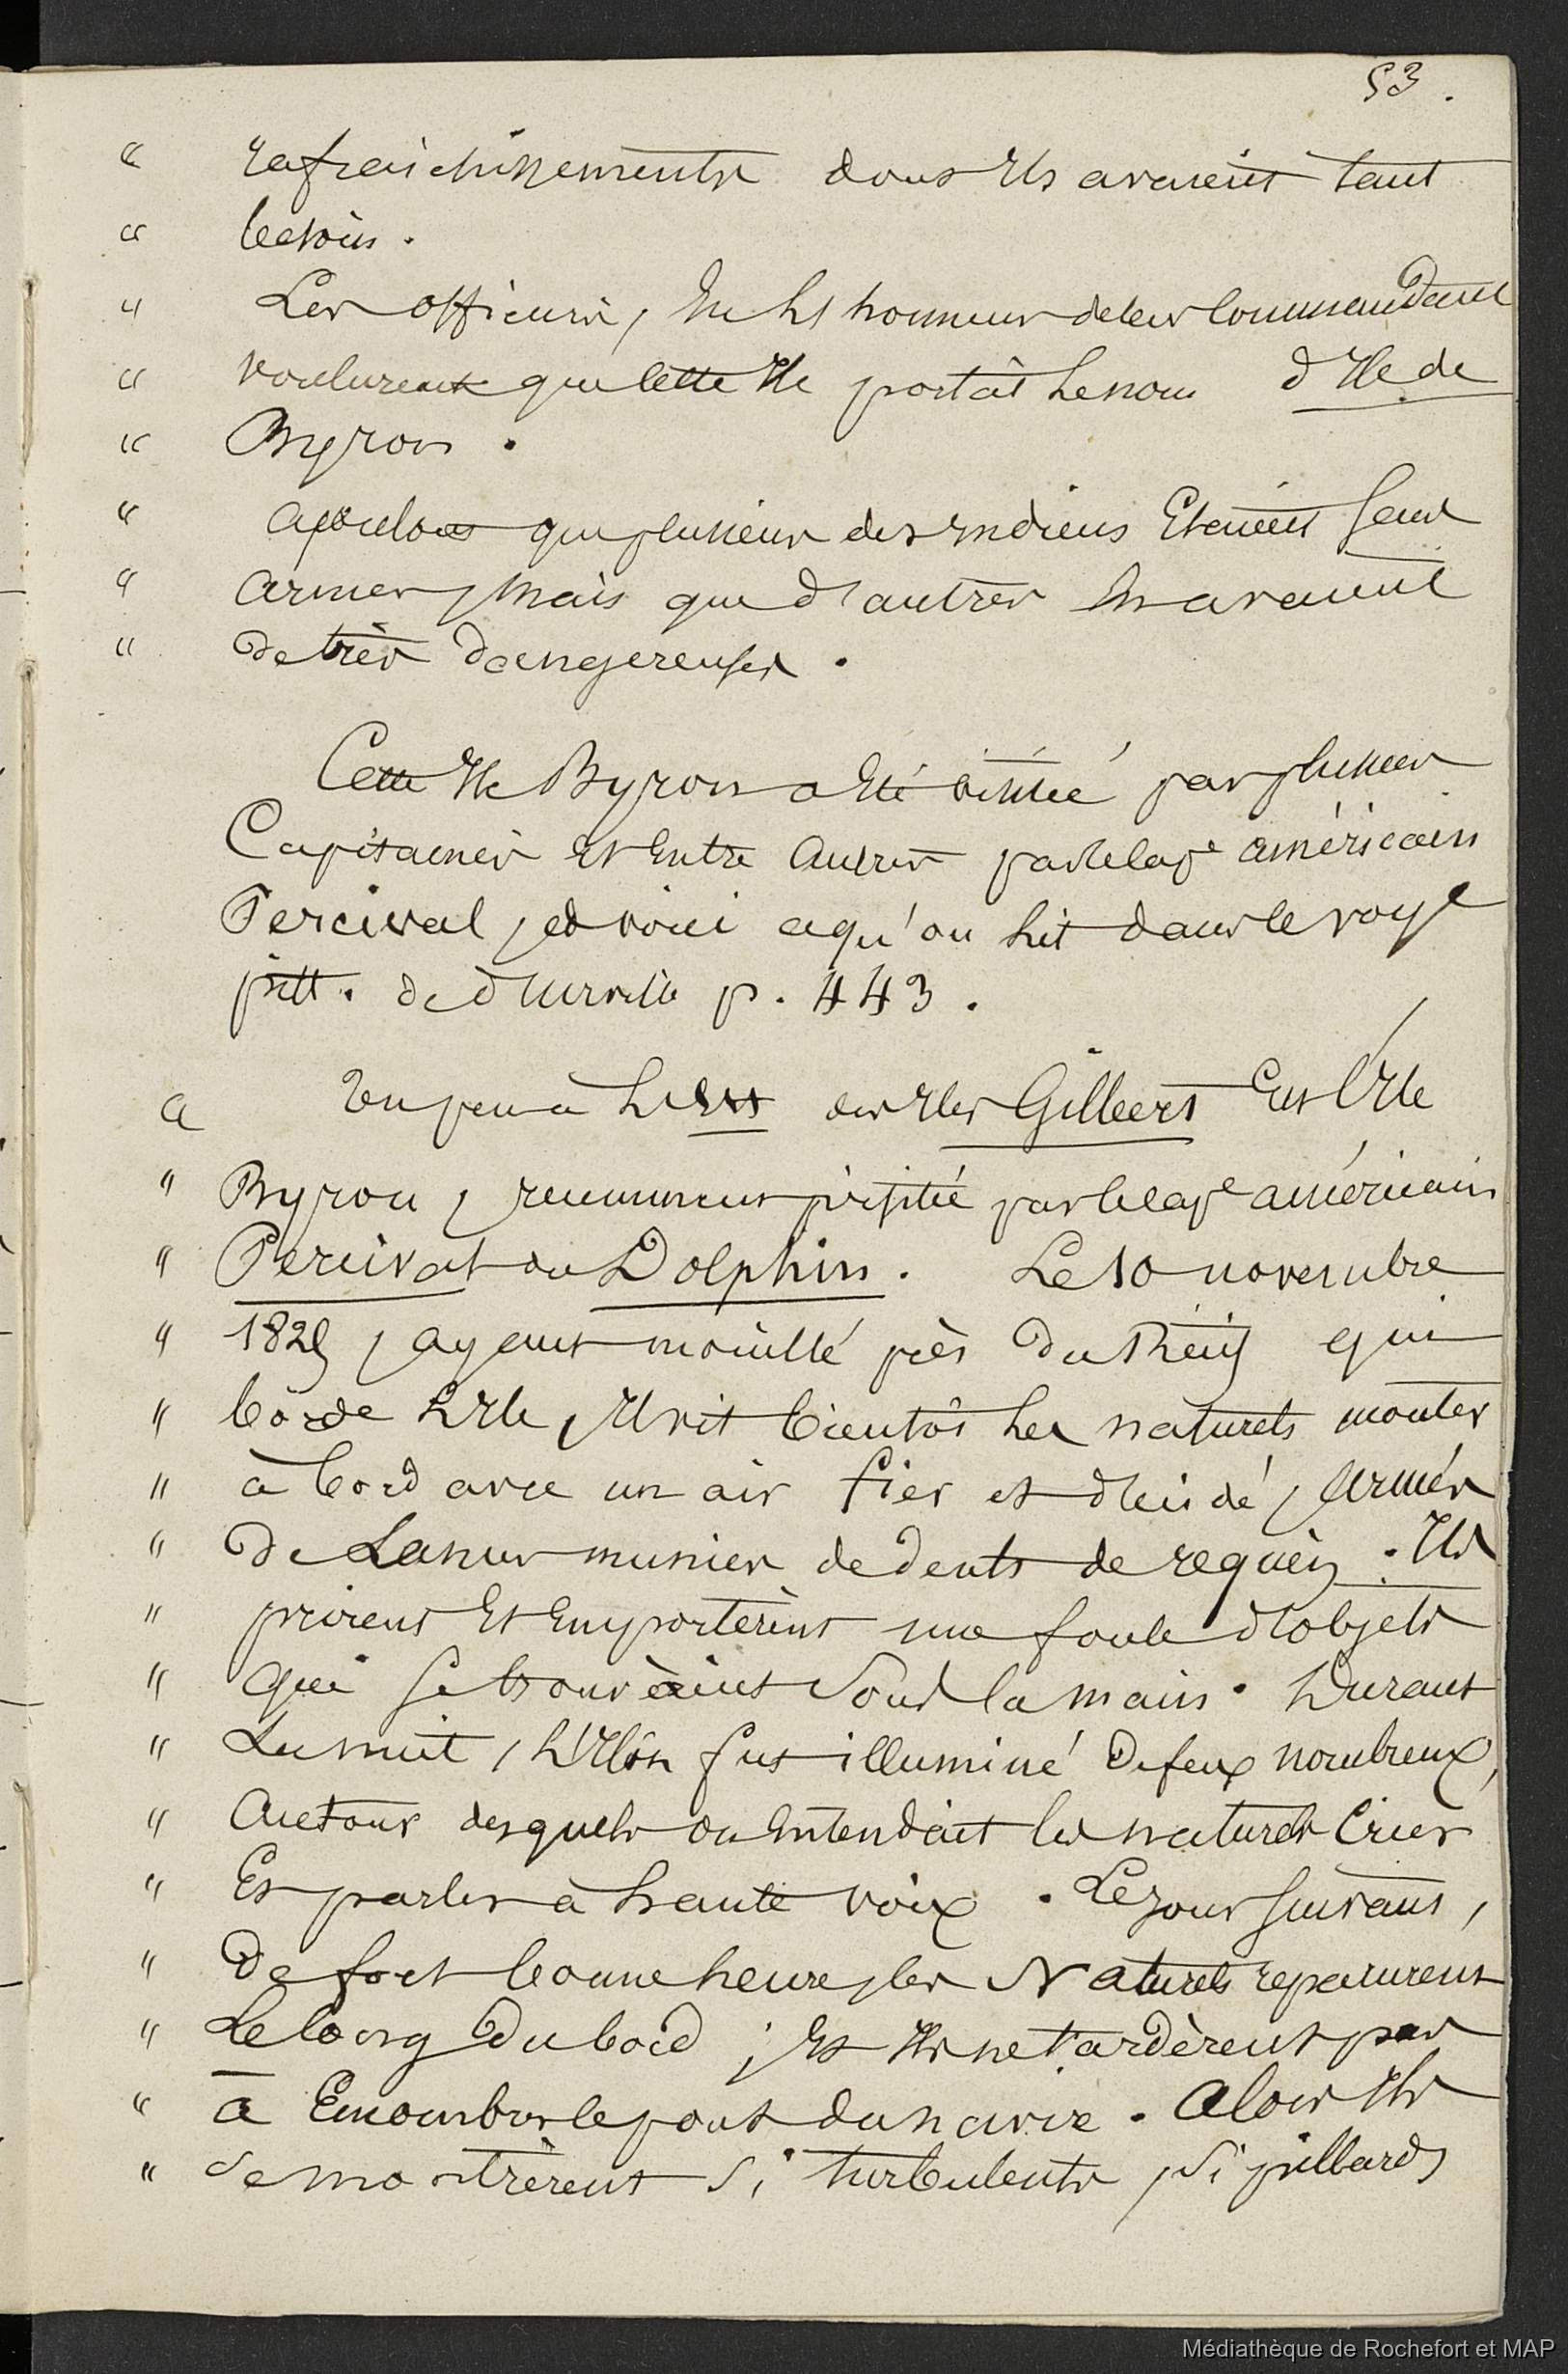 53.
" rafraichissements dont Ils avaient tant
" besoin.
" Les officiers, En L'honneur de leur Commandant
" voulurent que Cette Ile portât Le nom d'Ile de
" Byron.
" ajoutons que plusieurs des Indiens Etaient sans
" armes, Mais que d'autres En avaient
" de très dangereuses.
Cette Ile Byron a Eté visitée par plusieurs
Capitaines Et Entre Autres par le cape américain
Percival, et voici ce qu'on Lit dans le voye
pitt. de d'Urville p. 443.
" Un peu à L'Est des Iles Gilbert Est L'Ile
" Byron, récemment visitée par le cape américain
" Percival du Dolphin. Le 10 novembre
" 1825, ayant mouillé près du Récif qui
" borde L'Ile, Il vit bientôt Les naturels monter
" à bord avec un air fier et décidé, Armés
" De Lances munies de dents de requin. Ils
" prirent Et Emportèrent une foule d'objets
" qui se trouvèrent sous la main. Durant
" La nuit, L'Ilôt fut illuminé de feux nombreux,
" Autour desquels on Entendait les naturels Crier
" Et parler à haute voix. Le jour suivant,
" De fort bonne heure, les Naturels reparurent
" Le long du bord ; Et Ils ne tardèrent pas
" à Encombrer le pont du navire. Alors Ils
" se montrèrent si turbulents, si pillards
Médiathèque de Rochefort et MAP